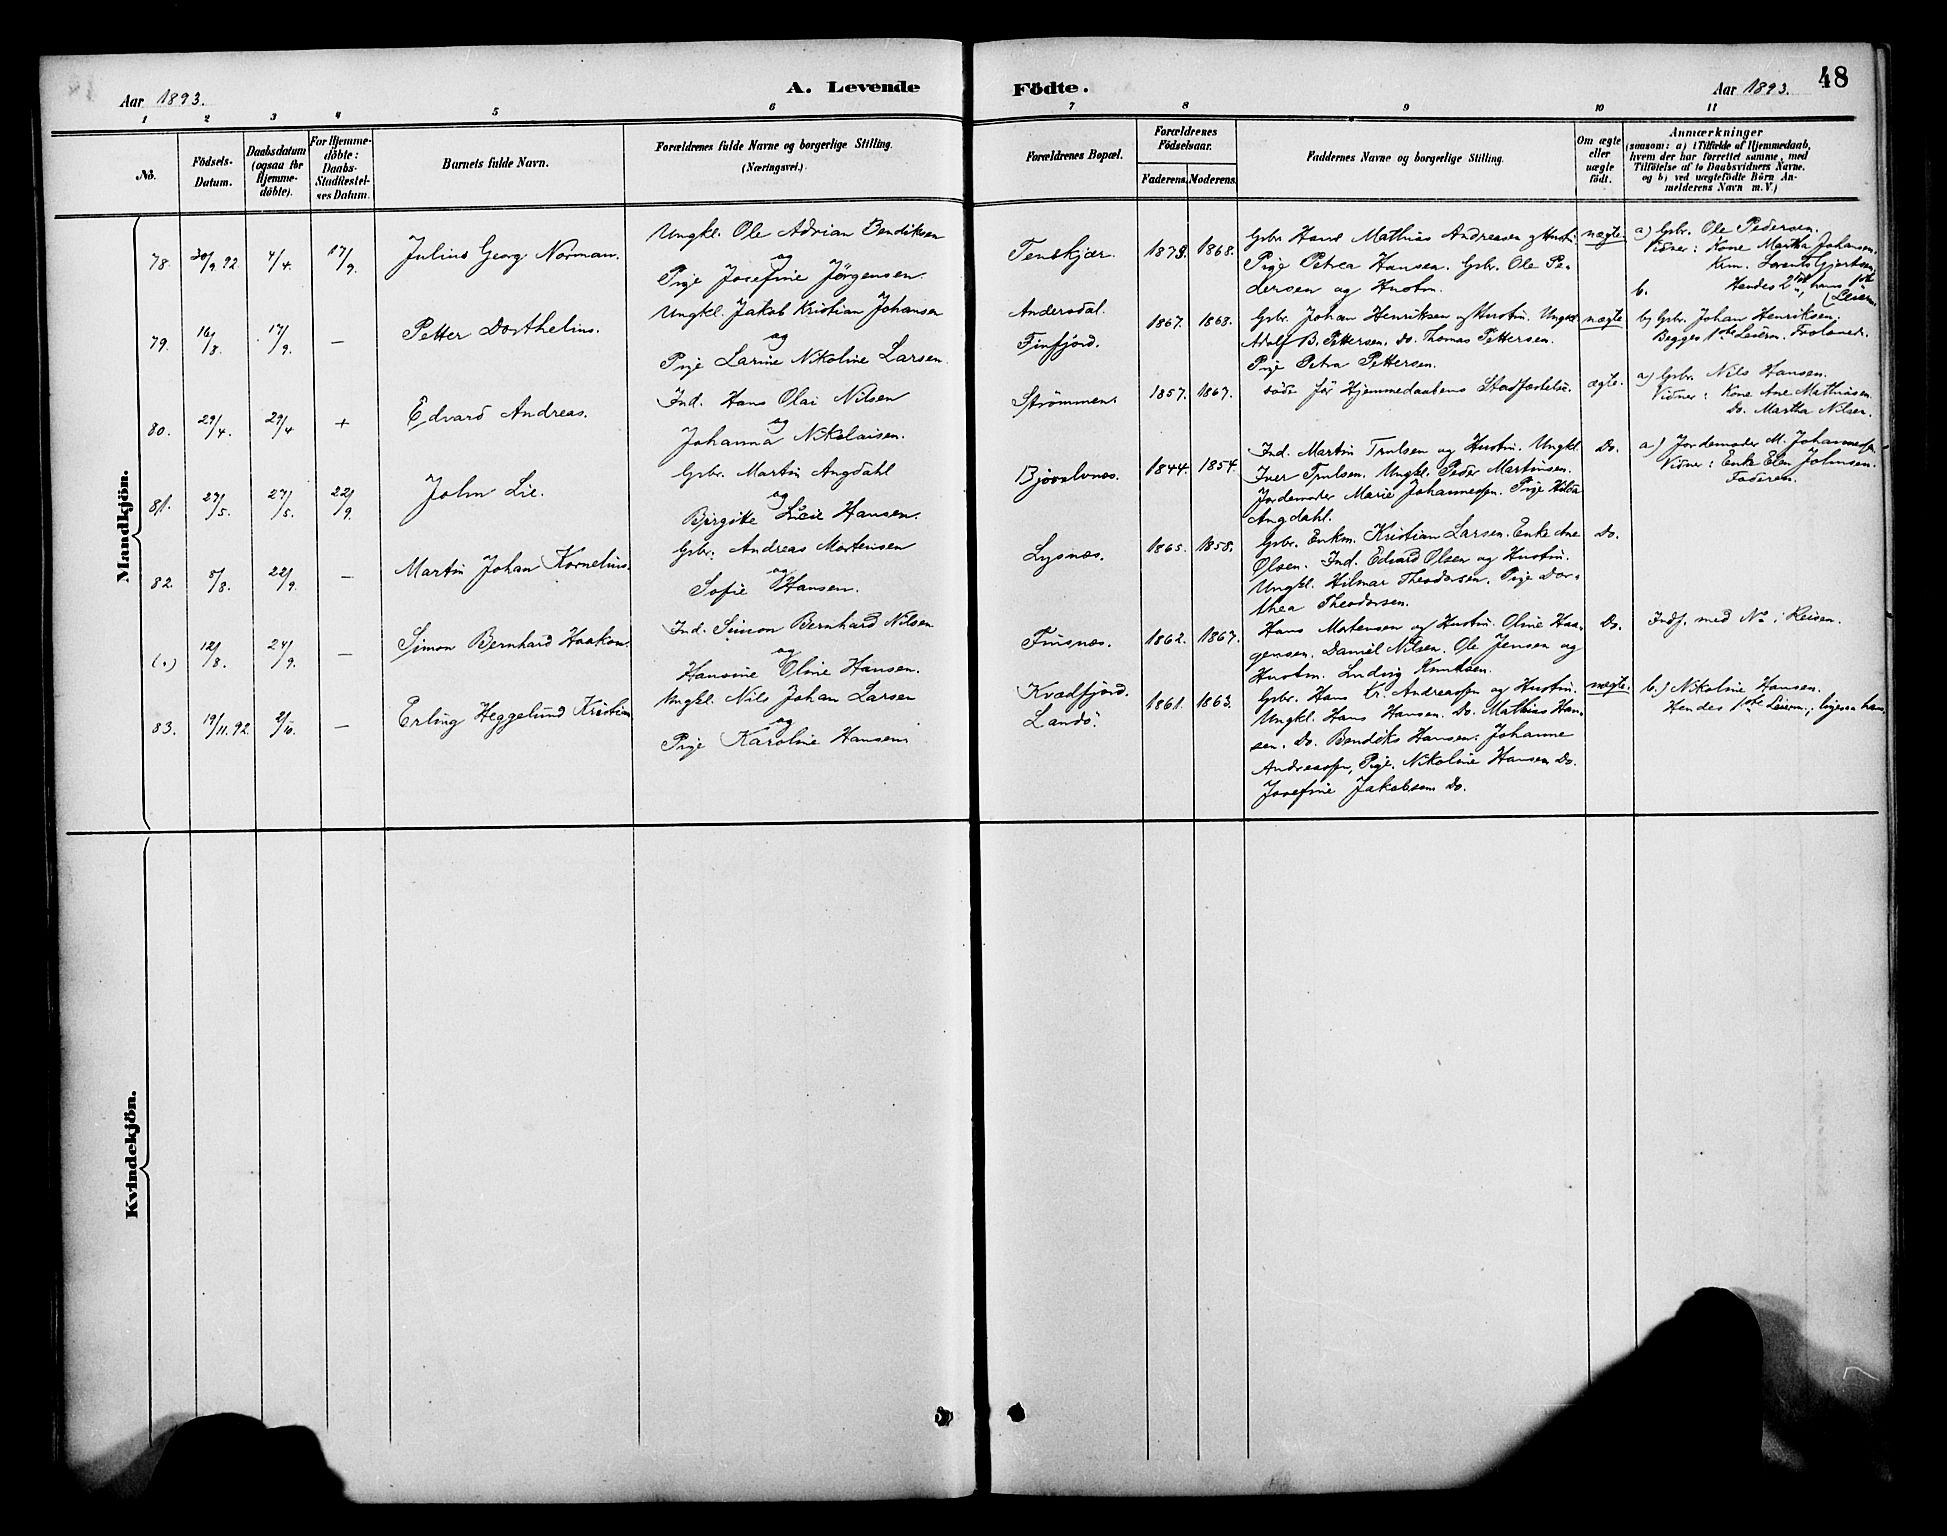 Aar 1893.
A. Levende
Födte.
Aar 1893.
48
1 2 3 4 5 6 7 8 9 10 11
No.
Födsels-Datum.
Daabsdatum (ogsaa for Hjemmedöbte).
For Hjemmedöbte: Daabs-Stadfæstelses Datum.
Barnets fulde Navn.
Forældrenes fulde Navne og borgerlige Stilling. (Næringsvei.)
Forældrenes Bopæl.
Forældrenes Födselsaar.
Faderens. Moderens.
Faddernes Navne og borgerlige Stilling.
Om ægte eller uægte födt.
Anmærkninger
(saasom: a) i Tilfælde af Hjemmedaab,
hvem der har forrettet samme, med
Tilföielse af to Daabsvidners Navne,
og b) ved uægtefödte Börn An-
melderens Navn m.V.)
Mandkjön.
78. 30/9.92. 4/4. 17/9.
Julius Georg Norman.
Ungkl. Ole Adrian Bendiksen
og
Pige Josefine Jørgensen.
Tenskjær.
1873. 1868.
Gbr. Hans Mathias Andreasen og Hustru.
Pige Petrea Hansen. Gbr. Ole Pe-
dersen og Hustru.
uægte.
a) Gbr. Ole Pedersen.
Vidner: Kone Martha Johansen.
Krm. Lorents Gjertsen.
b. Hendes 2det, hans 1ste
(Leierm.
79. 16/8. 17/9. —
Petter Dorthelius.
Ungkl. Jakob Kristian Johansen
og
Pige Larine Nikoline Larsen.
Andersdal.
Finfjord.
1867. 1868.
Gbr. Johan Henriksen og Hustru. Ungkl.
Adolf B. Pettersen. Do. Thomas Pettersen.
Pige Petra Pettersen.
uægte
b) Gbr. Johan Henriksen.
Begges 1ste Leierm.
80. 29/4. 29/4 +
Edvard Andreas.
Ind. Hans Olai Nilsen
og
Johanna Nikolaisen.
Strømmen.
1857. 1867.
døde før Hjemmedaabens Stadfæstelse.
ægte.
a) Gbr. Nils Hansen.
Vidner: Kone Ane Mathisen.
Do. Martha Nilsen.
81. 27/5. 27/5. 22/9.
John Lie.
Gbr. Martin Angdahl
og
Birgitte Lucie Hansen.
Bjorelvnes.
1844. 1854.
Ind. Martin Trulsen og Hustru. Ungkl.
Iver Trulsen. Ungkl. Peder Martinsen.
Jordemoder Marie Johannessen. Pige Hilda
Angdahl.
Do.
a) Jordemoder M. Johannessen.
Vidner: Enke Elen Johnsen.
Faderen.
82. 8/8. 22/9. —
Martin Johan Kornelius.
Gbr. Andreas Mortensen
og
Sofie Hansen.
Lysnæs.
1865. 1858.
Gbr. Enkm. Kristian Larsen. Enke Ane
Olsen. Ind. Edvard Olsen og Hustru.
Ungkl. Hilmar Theodorsen. Pige Dor-
thea Theodorsen.
Do.
(.) 12/8. 24/9. —
Simon Bernhard Haakon.
Ind. Simon Bernhard Nilsen
og
Hansine Oline Hansen.
Finsnæs.
1862. 1867.
Hans Mortensen og Hustru. Oline Haa-
gensen. Daniel Nilsen. Ole Jensen og
Hustru. Ludvig Knudsen.
Do.
Indf. med No. i Reisen.
83. 19/11.92. 2/10. —
Erling Heggelund Kristian
Ungkl. Nils Johan Larsen
og
Pige Karoline Hansen.
Kvædfjord.
Landø.
1861. 1863.
Gbr. Hans Kr. Andreassen og Hustru.
Ungkl. Hans Hansen. Do. Mathias Han-
sen. Do. Bendiks Hansen. Johanne
Andreassen, Pige. Nikoline Hansen Do.
Josefine Jakobsen Do.
uægte.
b.) Nikoline Hansen.
Hendes 1ste Leierm., ligesaa hans.
Kvindekjön.